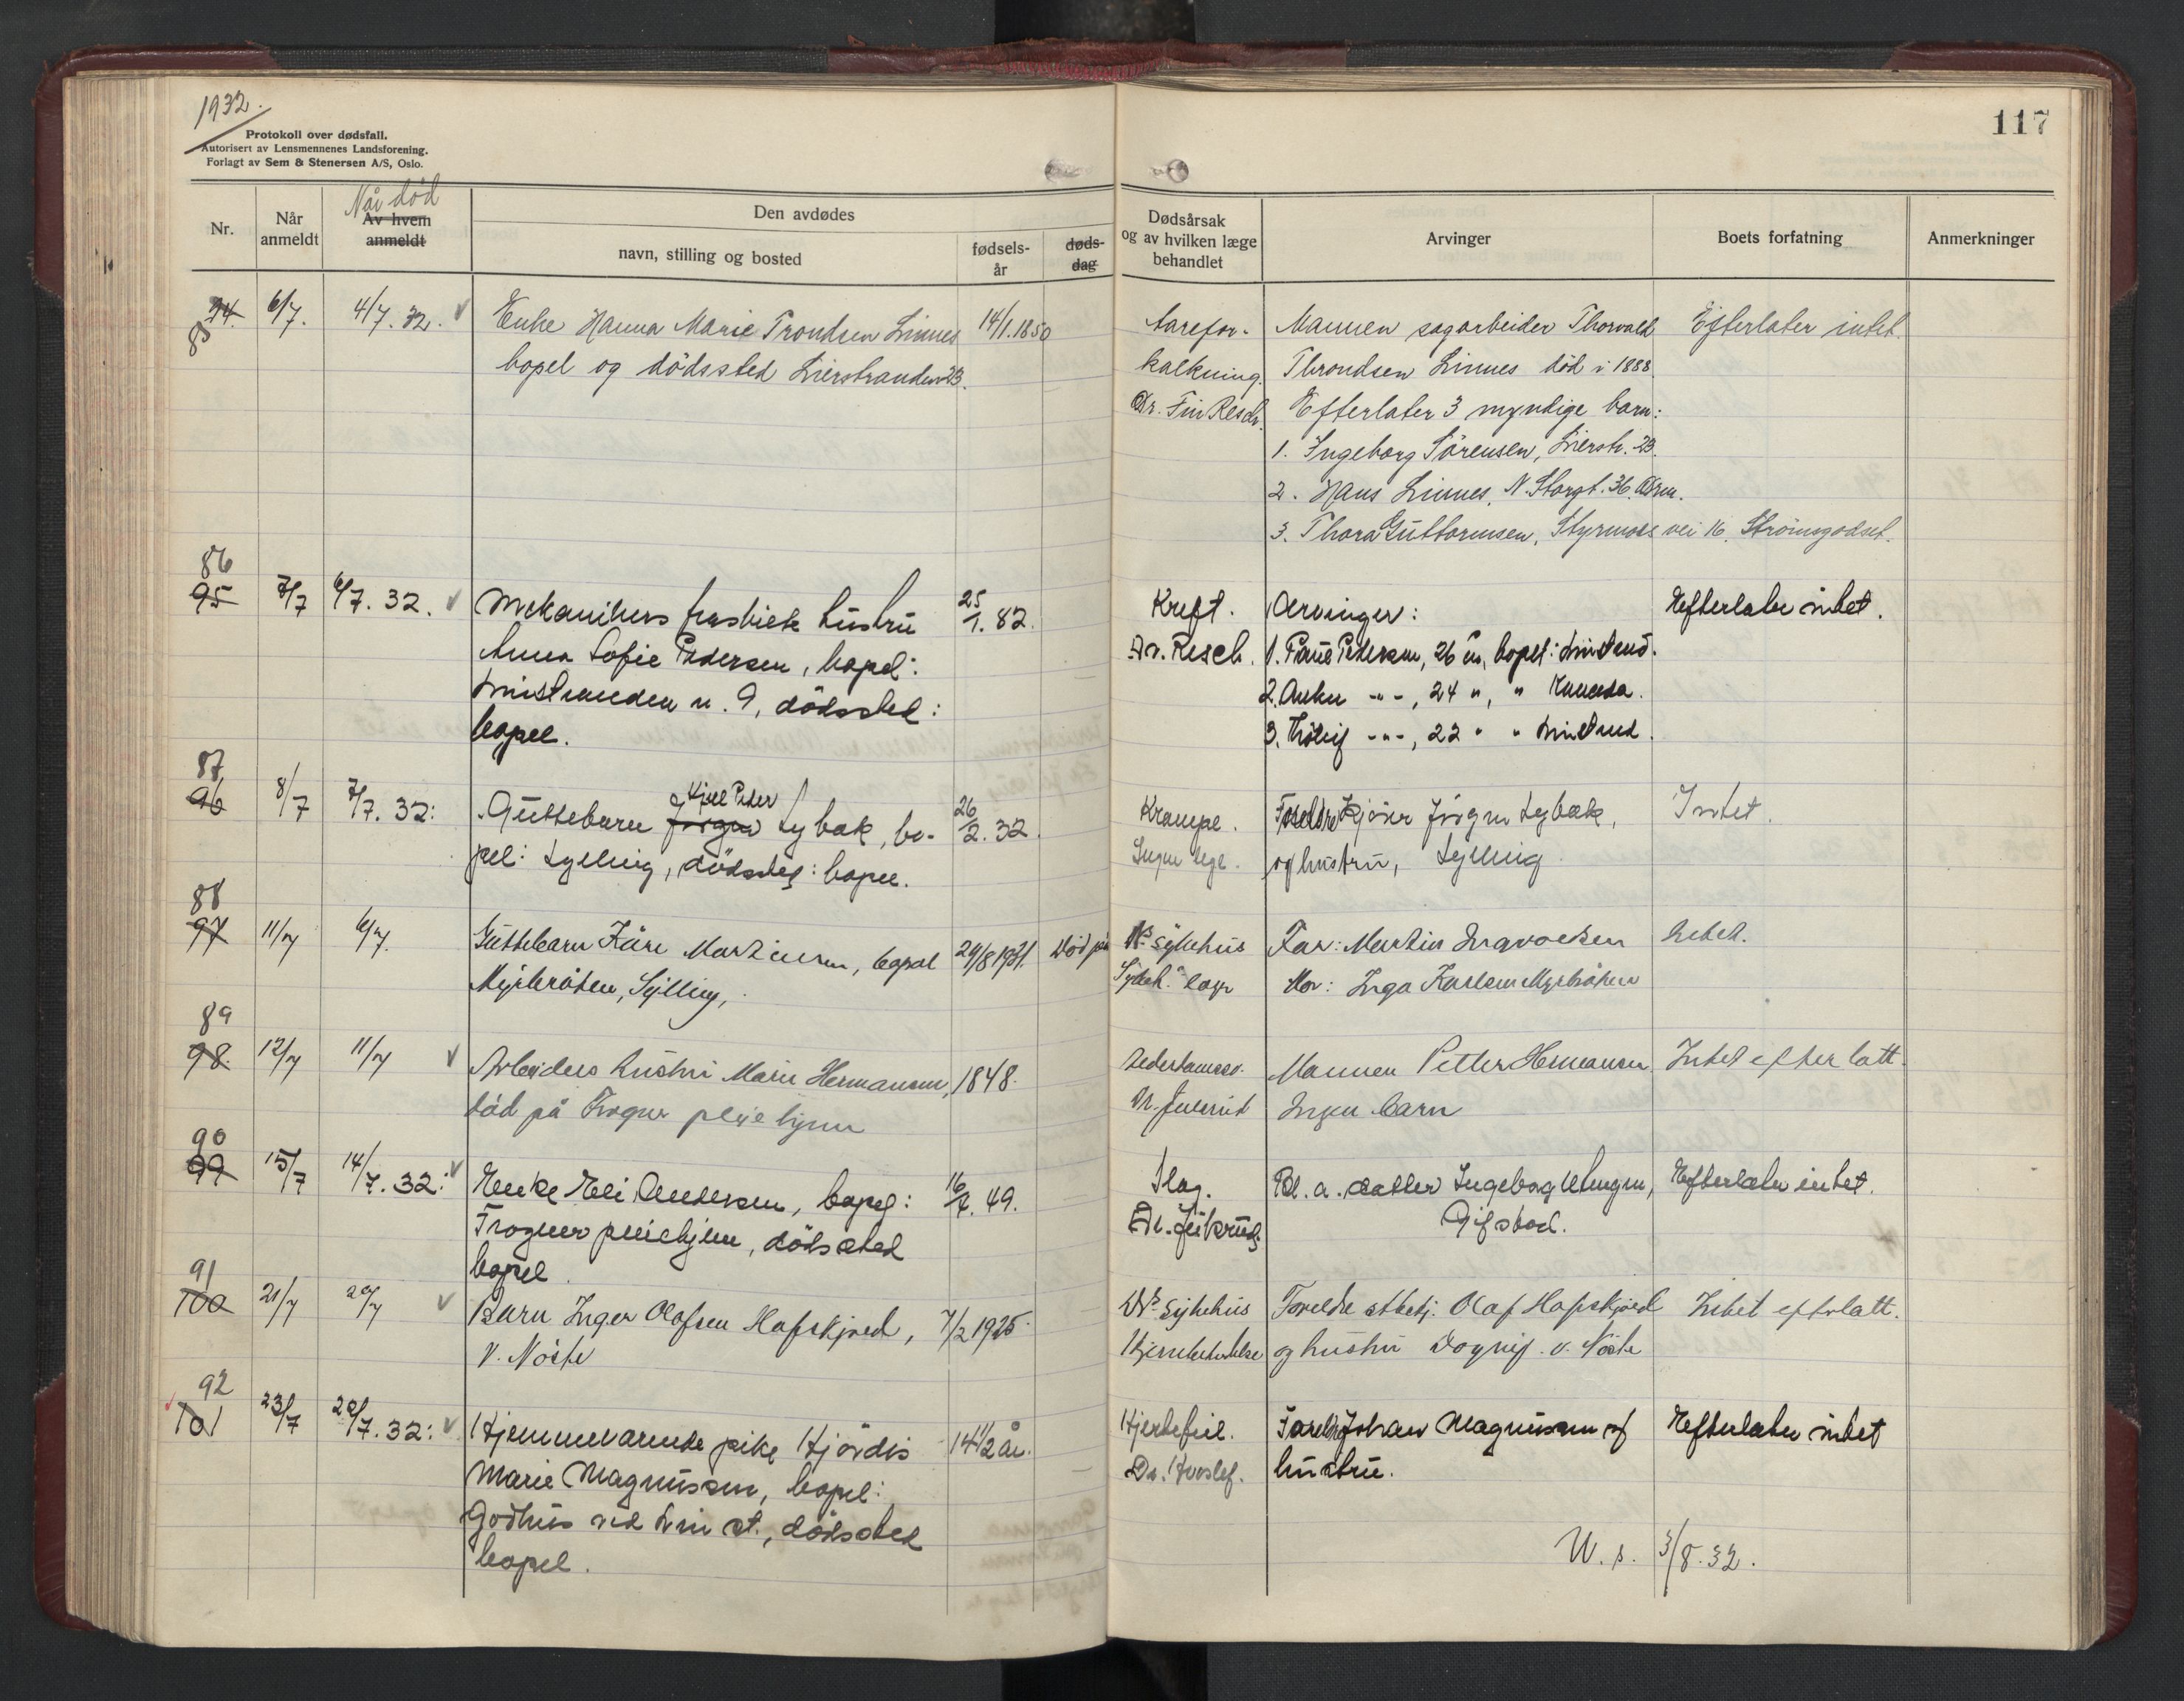 1932.
117
Protokoll over dødsfall.
Autorisert av Lensmennenes Landsforening.
Forlagt av Sem & Stenersen A/S, Oslo.
Nr.
Når anmeldt
Når død
Av hvem anmeldt
Den avdødes
navn, stilling og bosted
fødsels-år
døds-dag
Dødsårsak og av hvilken læge behandlet
Arvinger
Boets forfatning
Anmerkninger
94. 85 6/7. 4/7. 32. Enke Hanna Marie Trondsen Linnes 14/1.1850
bopel og dödssted Lierstranden 23.
Aarefor-
kalkning.
Dr. Fin Resch.
Mannen sagarbeider Thorvald
Throndsen Linnes död i 1888.
Efterlater 3 myndige barn:
1. Ingeborg Sörensen, Lierstr. 23.
2. Hans Linnes, N. Storgt. 36. Drm.
3. Thora Guttormsen, Styrmoes vei 16, Strömsgodset.
Efterlater intet.
86
95 7/7 6/7. 32. Mekanikers fraskilte hustru 25/1. 82.
Anna Sofie Pedersen, bopel:
Lierstranden n. 9, dödssted:
bopel.
Kreft.
Dr. Resch.
Arvinger:
1. Pedersen, 26 år, bopel: Lierstrand.
2. -"-, 24 ", "
3. -"-, 22 " " Lierstrand.
Efterlater intet.
87
96 8/7 7/7. 32: Guttebarn Jörgen Kjell Peder Lybæk, bo- 26/2. 32.
pel: Sylling, dödssted: bopel.
Krampe.
Ingen lege.
Foreldre Jörgen Lybæk,
og hustru, Sylling.
Intet.
88
97 11/7 6/7. Guttebarn Kåre Martinsen, bopel 24/8 1931. Död på
Myrbråten, Sylling,
Ds. sykehus
Far: Martin
Mor: Inga Karlsen Myrbråten
Intet.
89
98. 12/7 11/7 Arbeiders hustru Marie Hermansen, 1848.
död på Frogner pleiehjem
Alderdomssv.
Dr. Juelsrud
Mannen Petter Hermansen
Ingen barn
Intet efterlatt.
90
99 15/7 14/7. 32: Enke Eli Andersen, bopel: 16/4. 49.
Frogner pleiehjem, dödssted
bopel.
Slag.
Bl. a. datter Ingeborg
Efterlater intet.
91
100 21/7 20/7 Barn Inger Olafsen Hafskjold, 7/2 1925.
V. Nöste
Ds. sykehus
Hjernebetendelse
Foreldre arbeidj. Olaf Hafskjold
og hustru Dagny. v. Nöste
Intet efterlatt.
92
101 23/7 20/7. 32: Hjemmeværende pike Hjördis 14 1/2 år.
Marie Magnussen, bopel:
Godhus ved Lier st., dödssted
bopel.
Hjertefeil.
Dr. Horslef.
Foreldre Johan Magnussen og
hustru.
Efterlater intet
U. s. 3/8. 32.